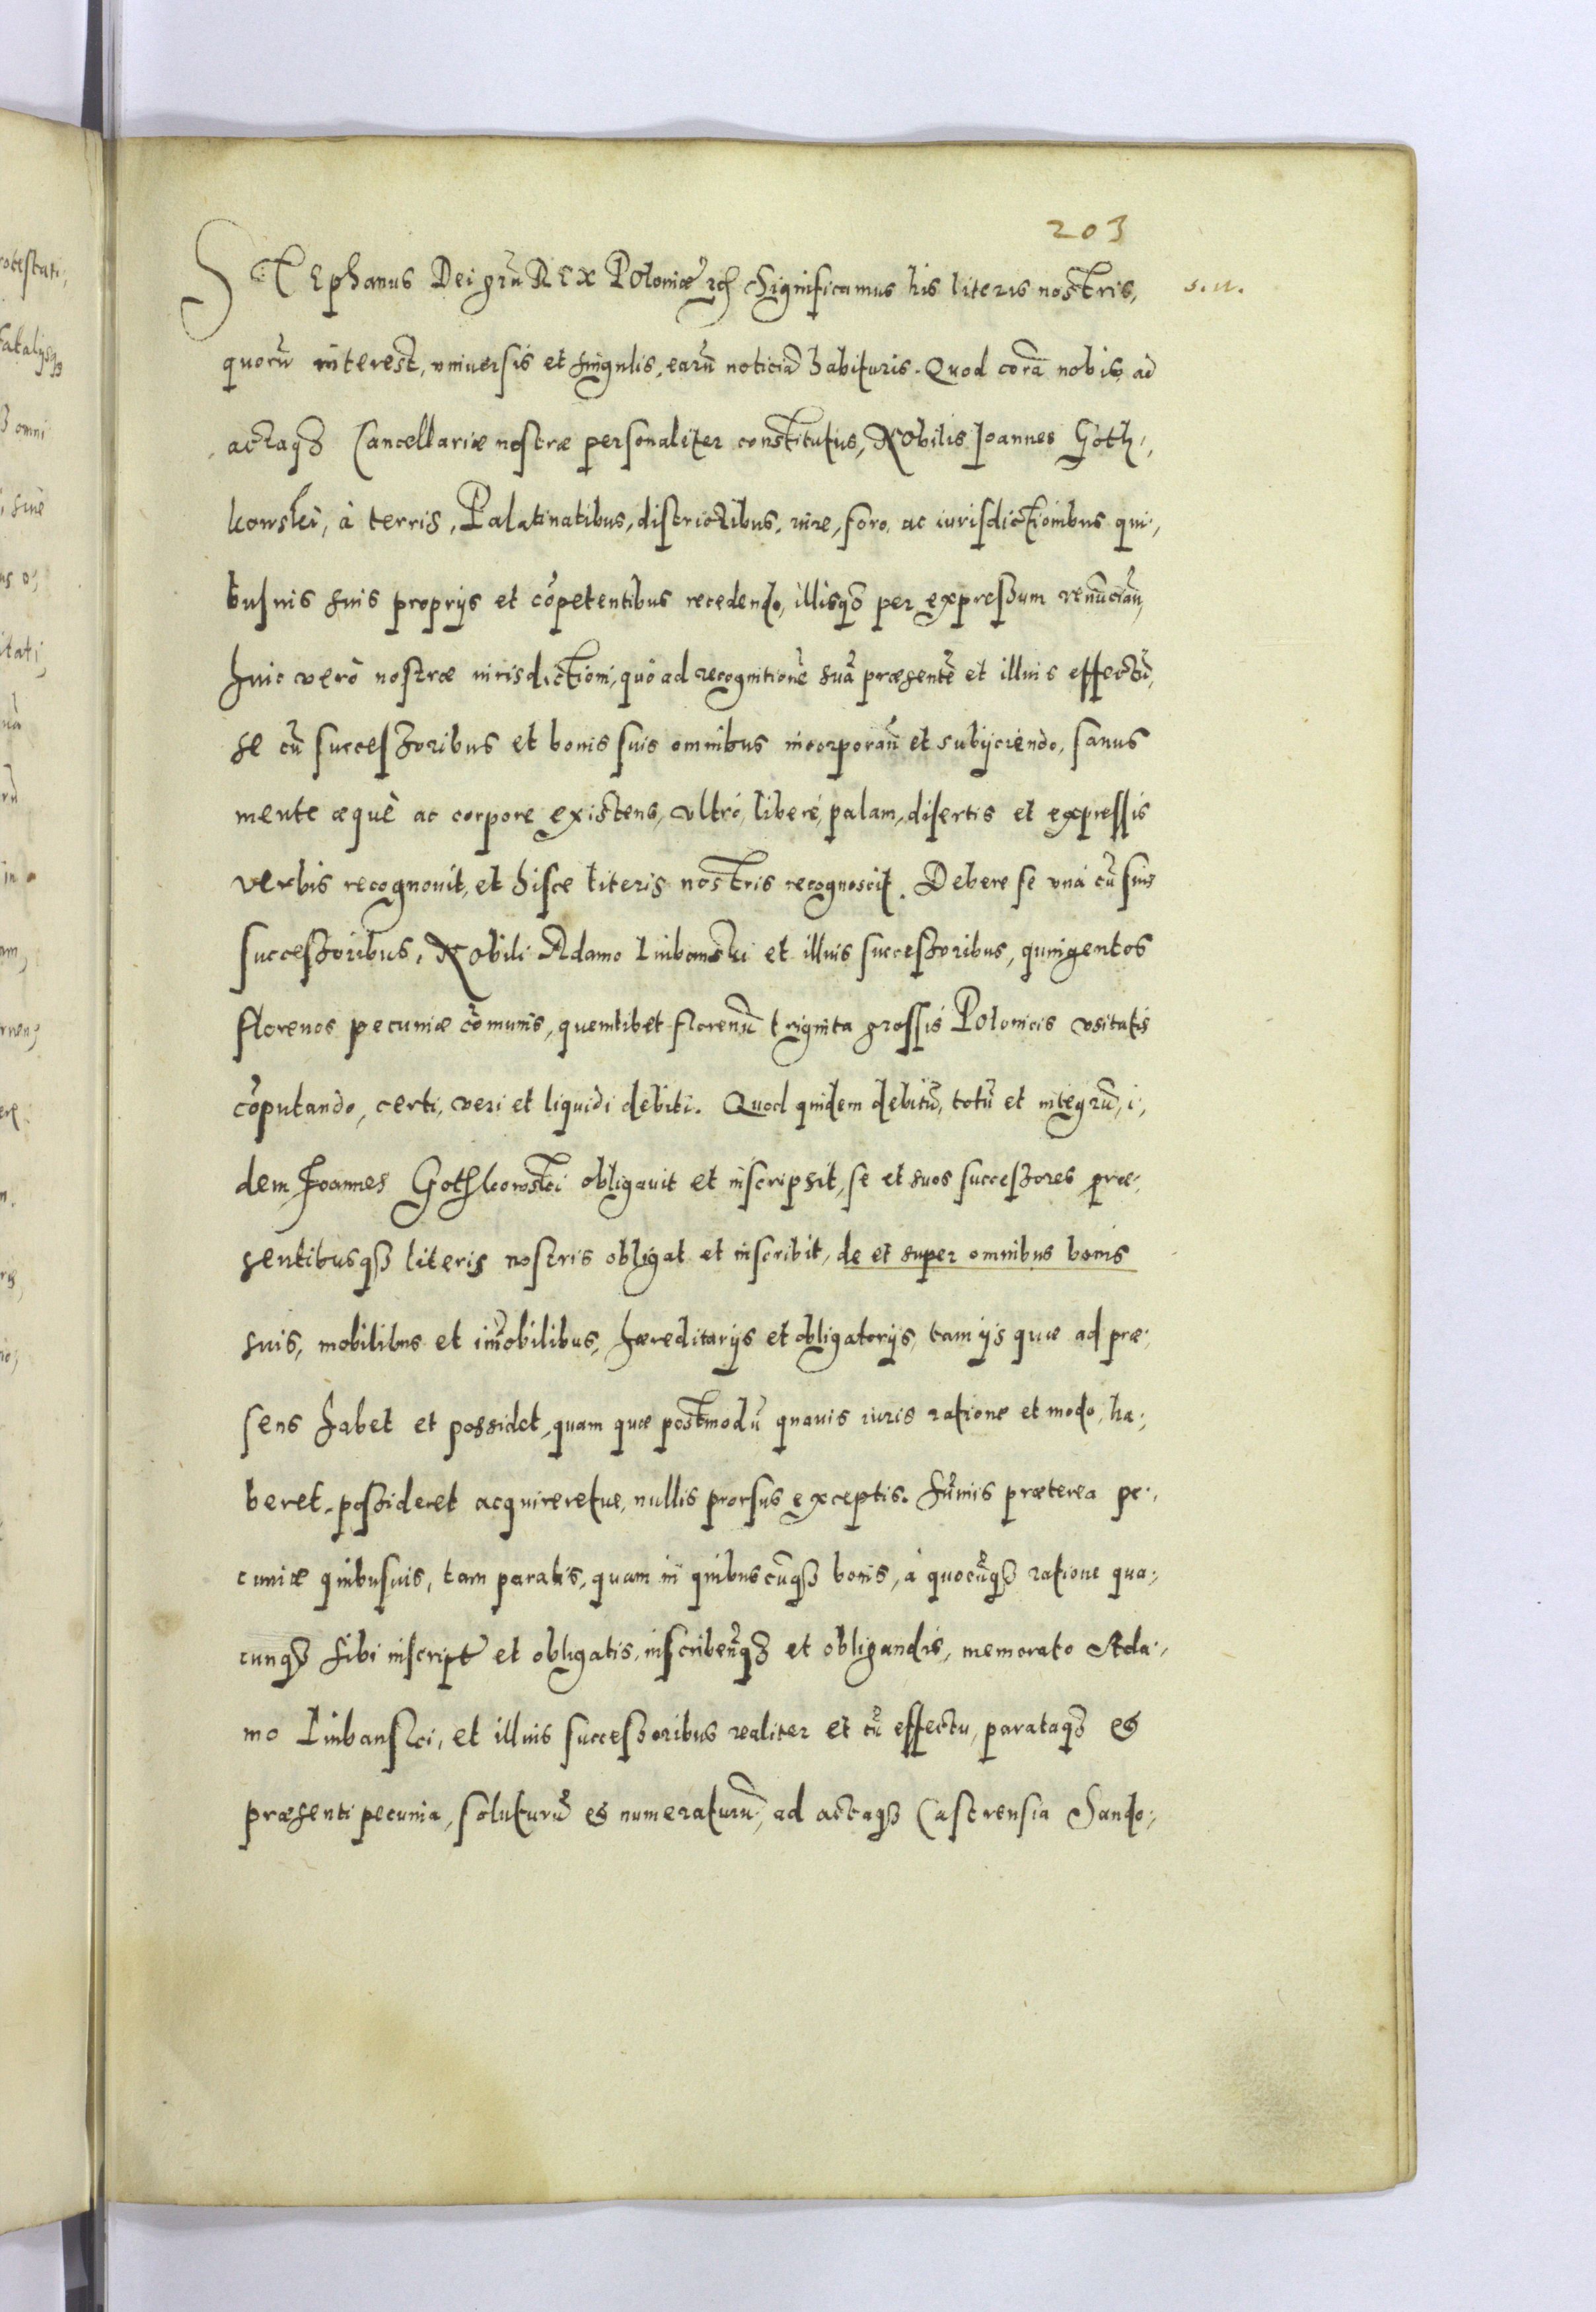 203
Stephanus Dei grã Rex Poloniæ etc̃ Significamus his literis nostris, s. n.
quorũ interest, vniuersis et singulis, earũ noticiã habituris. Quod corã nobis, ad
actaqꝫ Cancellariæ nostræ personaliter constitutus, Nobilis Joannes Goth,,
kowski, à terris, Palatinatibus, districtibus, iure, foro, ac iurisdictionibus qui,,
busuis suis proprijs et cõpetentibus recedendo, illisqꝫ per expressum renũciañ,
huic verò nostræ iurisdictioni, quò ad recognitionẽ suã præsentẽ et illius effectũ,
se cũ successoribus et bonis suis omnibus incorporañ et subijciendo, sanus
mente æquè ac corpore existens, vltrò, liberè, palam, disertis et expressis
verbis recognouit, et hisce literis nostris recognoscit. Debere se vnà cũ suis
successoribus, Nobili Adamo Linbanski et illius successoribus, quingentos
florenos pecuniæ cõmunis, quemlibet florenũ triginta grossis Polonicis vsitatis
cõputando, certi, veri et liquidi debiti. Quod quidem debitũ, totũ et integrũ, i,,
dem Joannes Gothkowski obligauit et inscripsit, se et suos successores, præ,,
sentibusqꝫ literis nostris obligat et inscribit, de et super omnibus bonis
suis, mobilibus et im̃obilibus, hæreditarijs et obligatorijs, tam ijs quæ ad præ,,
sens habet et possidet, quam quæ postmodũ quauis iuris ratione et modo, ha,,
beret, possideret acquireretue, nullis prorsus exceptis. Sum̃is præterea pe,,
cuniæ quibusuis, tam paratis, quam in quibuscũqꝫ bonis, à quocũqꝫ ratione qua,,
cunqꝫ sibi inscript̃ et obligatis, inscribeñqꝫ et obligandis, memorato Ada,,
mo Linbanski, et illius successoribus realiter et cũ effectu, parataqꝫ et
præsenti pecunia, soluturũ et numeraturũ, ad actaqꝫ Castrensia Sando,,